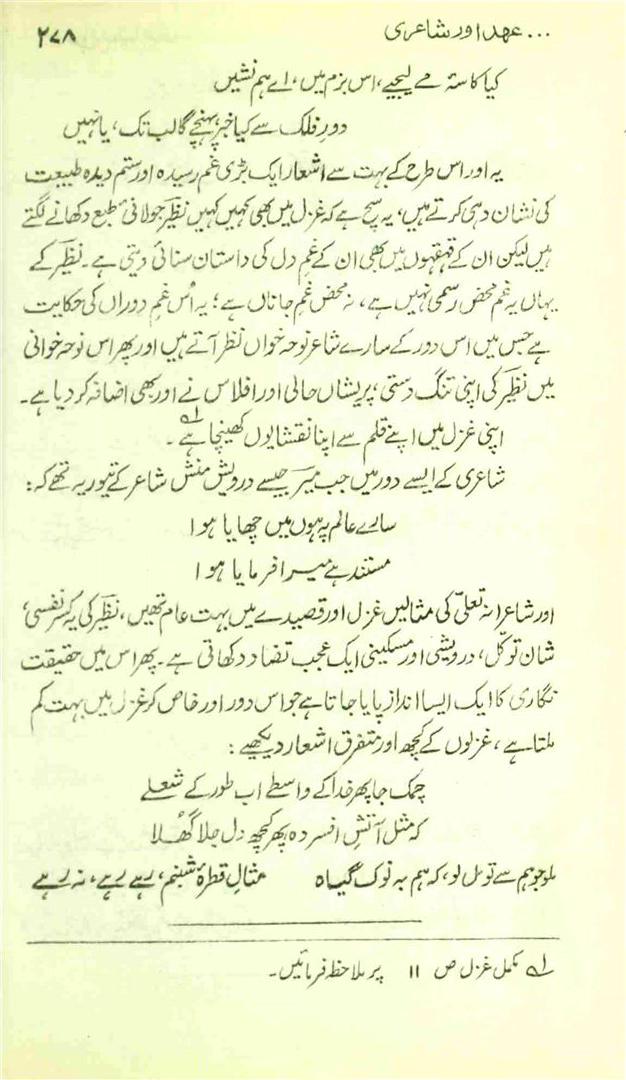 ... عہد اور شاعری ۲۷۸
کیا کاسۂ مے لیجیے، اس بزم میں، اے ہم نشیں
دورِ فلک سے کیا خبر پہنچے گا لب تک، یا نہیں
یہ اور اس طرح کے بہت سے اشعار ایک بڑی غم رسیدہ اور ستم دیدہ طبیعت
کی نشان دہی کرتے ہیں، یہ سچ ہے کہ غزل میں بھی کہیں کہیں نظیرؔ جولانیِٔ طبع دکھانے لگتے
ہیں لیکن ان کے قہقہوں میں بھی ان کے غمِ دل کی داستان سنائی دیتی ہے۔ نظیرؔ کے
یہاں یہ غم محض رسمی نہیں ہے، نہ محض غمِ جاناں ہے؛ یہ اُس غمِ دوراں کی حکایت
ہے جس میں اس دور کے سارے شاعر نوحہ خواں نظر آتے ہیں اور پھر اس نوحہ خوانی
میں نظیرؔ کی اپنی تنگ دستی، پریشاں حالی اور افلاس نے اور بھی اضافہ کر دیا ہے۔
اپنی غزل میں اپنے قلم سے اپنا نقشا یوں کھینچا ہے لہ۔
شاعری کے ایسے دور میں جب میرؔ جیسے درویش منش شاعر کے تیور یہ تھے کہ:
سارے عالم پہ ہوں میں چھایا ہوا
مستند ہے میرا فرمایا ہوا
اور شاعرانہ تعلیّ کی مثالیں غزل اور قصیدے میں بہت عام تھیں، نظیرؔ کی یہ کسرِ نفسی،
شانِ توکّل، درویشی اور مسکینی ایک عجب تضاد دکھاتی ہے۔ پھر اس میں حقیقت
نگاری کا ایک ایسا انداز پایا جاتا ہے جو اس دور اور خاص کر غزل میں بہت کم
ملتا ہے، غزلوں کے کچھ اور متفرق اشعار دیکھیے:
چمک جا پھر خدا کے واسطے اب طور کے شعلے
کہ مثل آتشِ افسردہ پھر کچھ دل جلا گھُلا
ملو جو ہم سے تو مل لو، کہ ہم بہ نوک گیاہ مثالِ قطرۂ شبنم، رہے رہے، نہ رہے
لہ مکمل غزل ص ۱۱ پر ملاحظہ فرمائیں۔